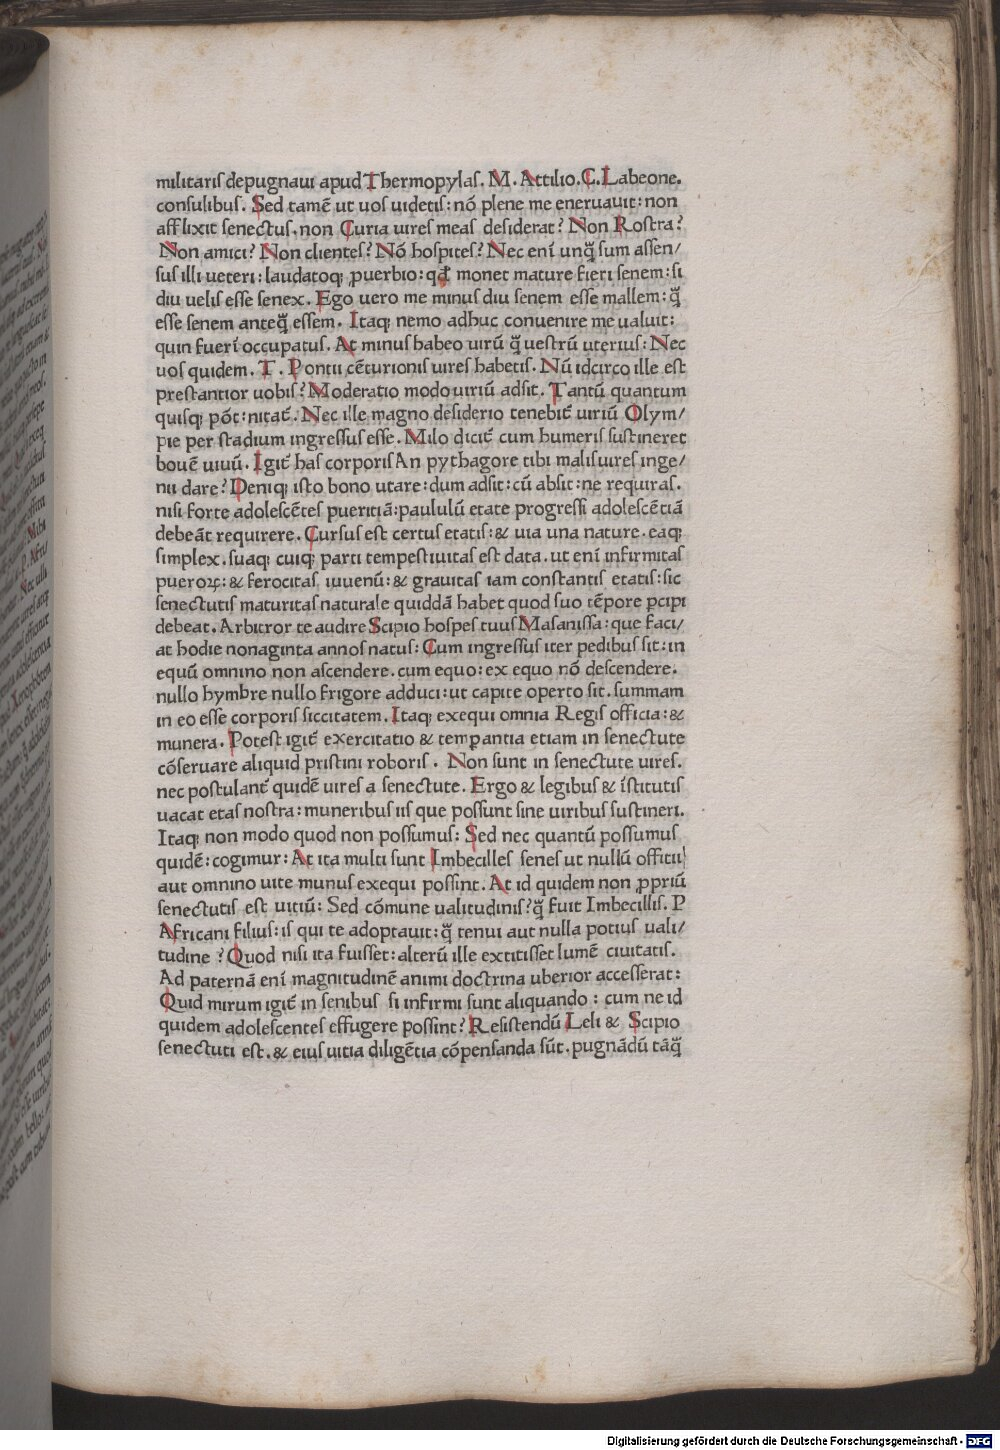 militaris depugnaui apud Thermopylas. M. Attilio. C. Labeone.
consulibus. Sed tamē ut uos uidetis: nō plene me eneruauit: non
afflixit senectus. non Curia uires meas desiderat? Non Rostra?
Non amici? Non clientes? Nō hospites? Nec enī unq̄ sum assen/
sus illi ueteri: laudatoq; ꝓuerbio: qd̄ monet mature fieri senem: si
diu uelis esse senex. Ego uero me minus diu senem esse mallem: q̄
esse senem anteq̄ essem. Itaq; nemo adhuc conuenire me ualuit:
quin fuerī occupatus. At minus habeo uirū q̄ uestrū uterius: Nec
uos quidem. T. Pontii cēturionis uires habetis. Nū idcirco ille est
prestantior uobis? Moderatio modo uiriū adsit. Tantū quantum
quisq; pōt: nitat̄. Nec ille magno desiderio tenebit̄ uiriū Olym/
pie per stadium ingressus esse. Milo dicit̄ cum humeris sustineret
bouē uiuū. Igit̄ has corporis An pythagore tibi malis uires inge/
nii dare? Deniq; isto bono utare: dum adsit: cū absit: ne requiras.
nisi forte adolescētes pueritiā: paululū etate progressi adolescētiā
debeāt requirere. Cursus est certus etatis: & uia una nature. eaq;
simplex. suaq; cuiq; parti tempestiuitas est data. ut enī infirmitas
pueroꝝ: & ferocitas iuuenū: & grauitas iam constantis etatis: sic
senectutis maturitas naturale quiddā habet quod suo tēpore ꝑcipi
debeat. Arbitror te audire Scipio hospes tuus Masanissa: que faci/
at hodie nonaginta annos natus: Cum ingressus iter pedibus sit: in
equū omnino non ascendere. cum equo: ex equo nō descendere.
nullo hymbre nullo frigore adduci: ut capite operto sit. summam
in eo esse corporis siccitatem. Itaq; exequi omnia Regis officia: &
munera. Potest igit̄ exercitatio & temꝑantia etiam in senectute
cōseruare aliquid pristini roboris. Non sunt in senectute uires.
nec postulant̄ quidē uires a senectute. Ergo & legibus & īstitutis
uacat etas nostra: muneribus iis que possunt sine uiribus sustineri.
Itaq; non modo quod non possumus: Sed nec quantū possumus
quidē: cogimur: At ita multi sunt Imbecilles senes ut nullū offitii
aut omnino uite munus exequi possint. At id quidem non ꝓpriū
senectutis est uitiū: Sed cōmune ualitudinis? q̄ fuit Imbecillis. P
Africani filius: is qui te adoptauit: q̄ tenui aut nulla potius uali/
tudine? Quod nisi ita fuisset: alterū ille extitisset lumē ciuitatis.
Ad paternā enī magnitudinē animi doctrina uberior accesserat:
Quid mirum igit̄ in senibus si infirmi sunt aliquando: cum ne id
quidem adolescentes effugere possint? Resistendū Leli & Scipio
senectuti est. & eius uitia diligētia cōpensanda sūt. pugnādū tāq̄
Digitalisierung gefördert durch die Deutsche Forschungsgemeinschaft - DFG